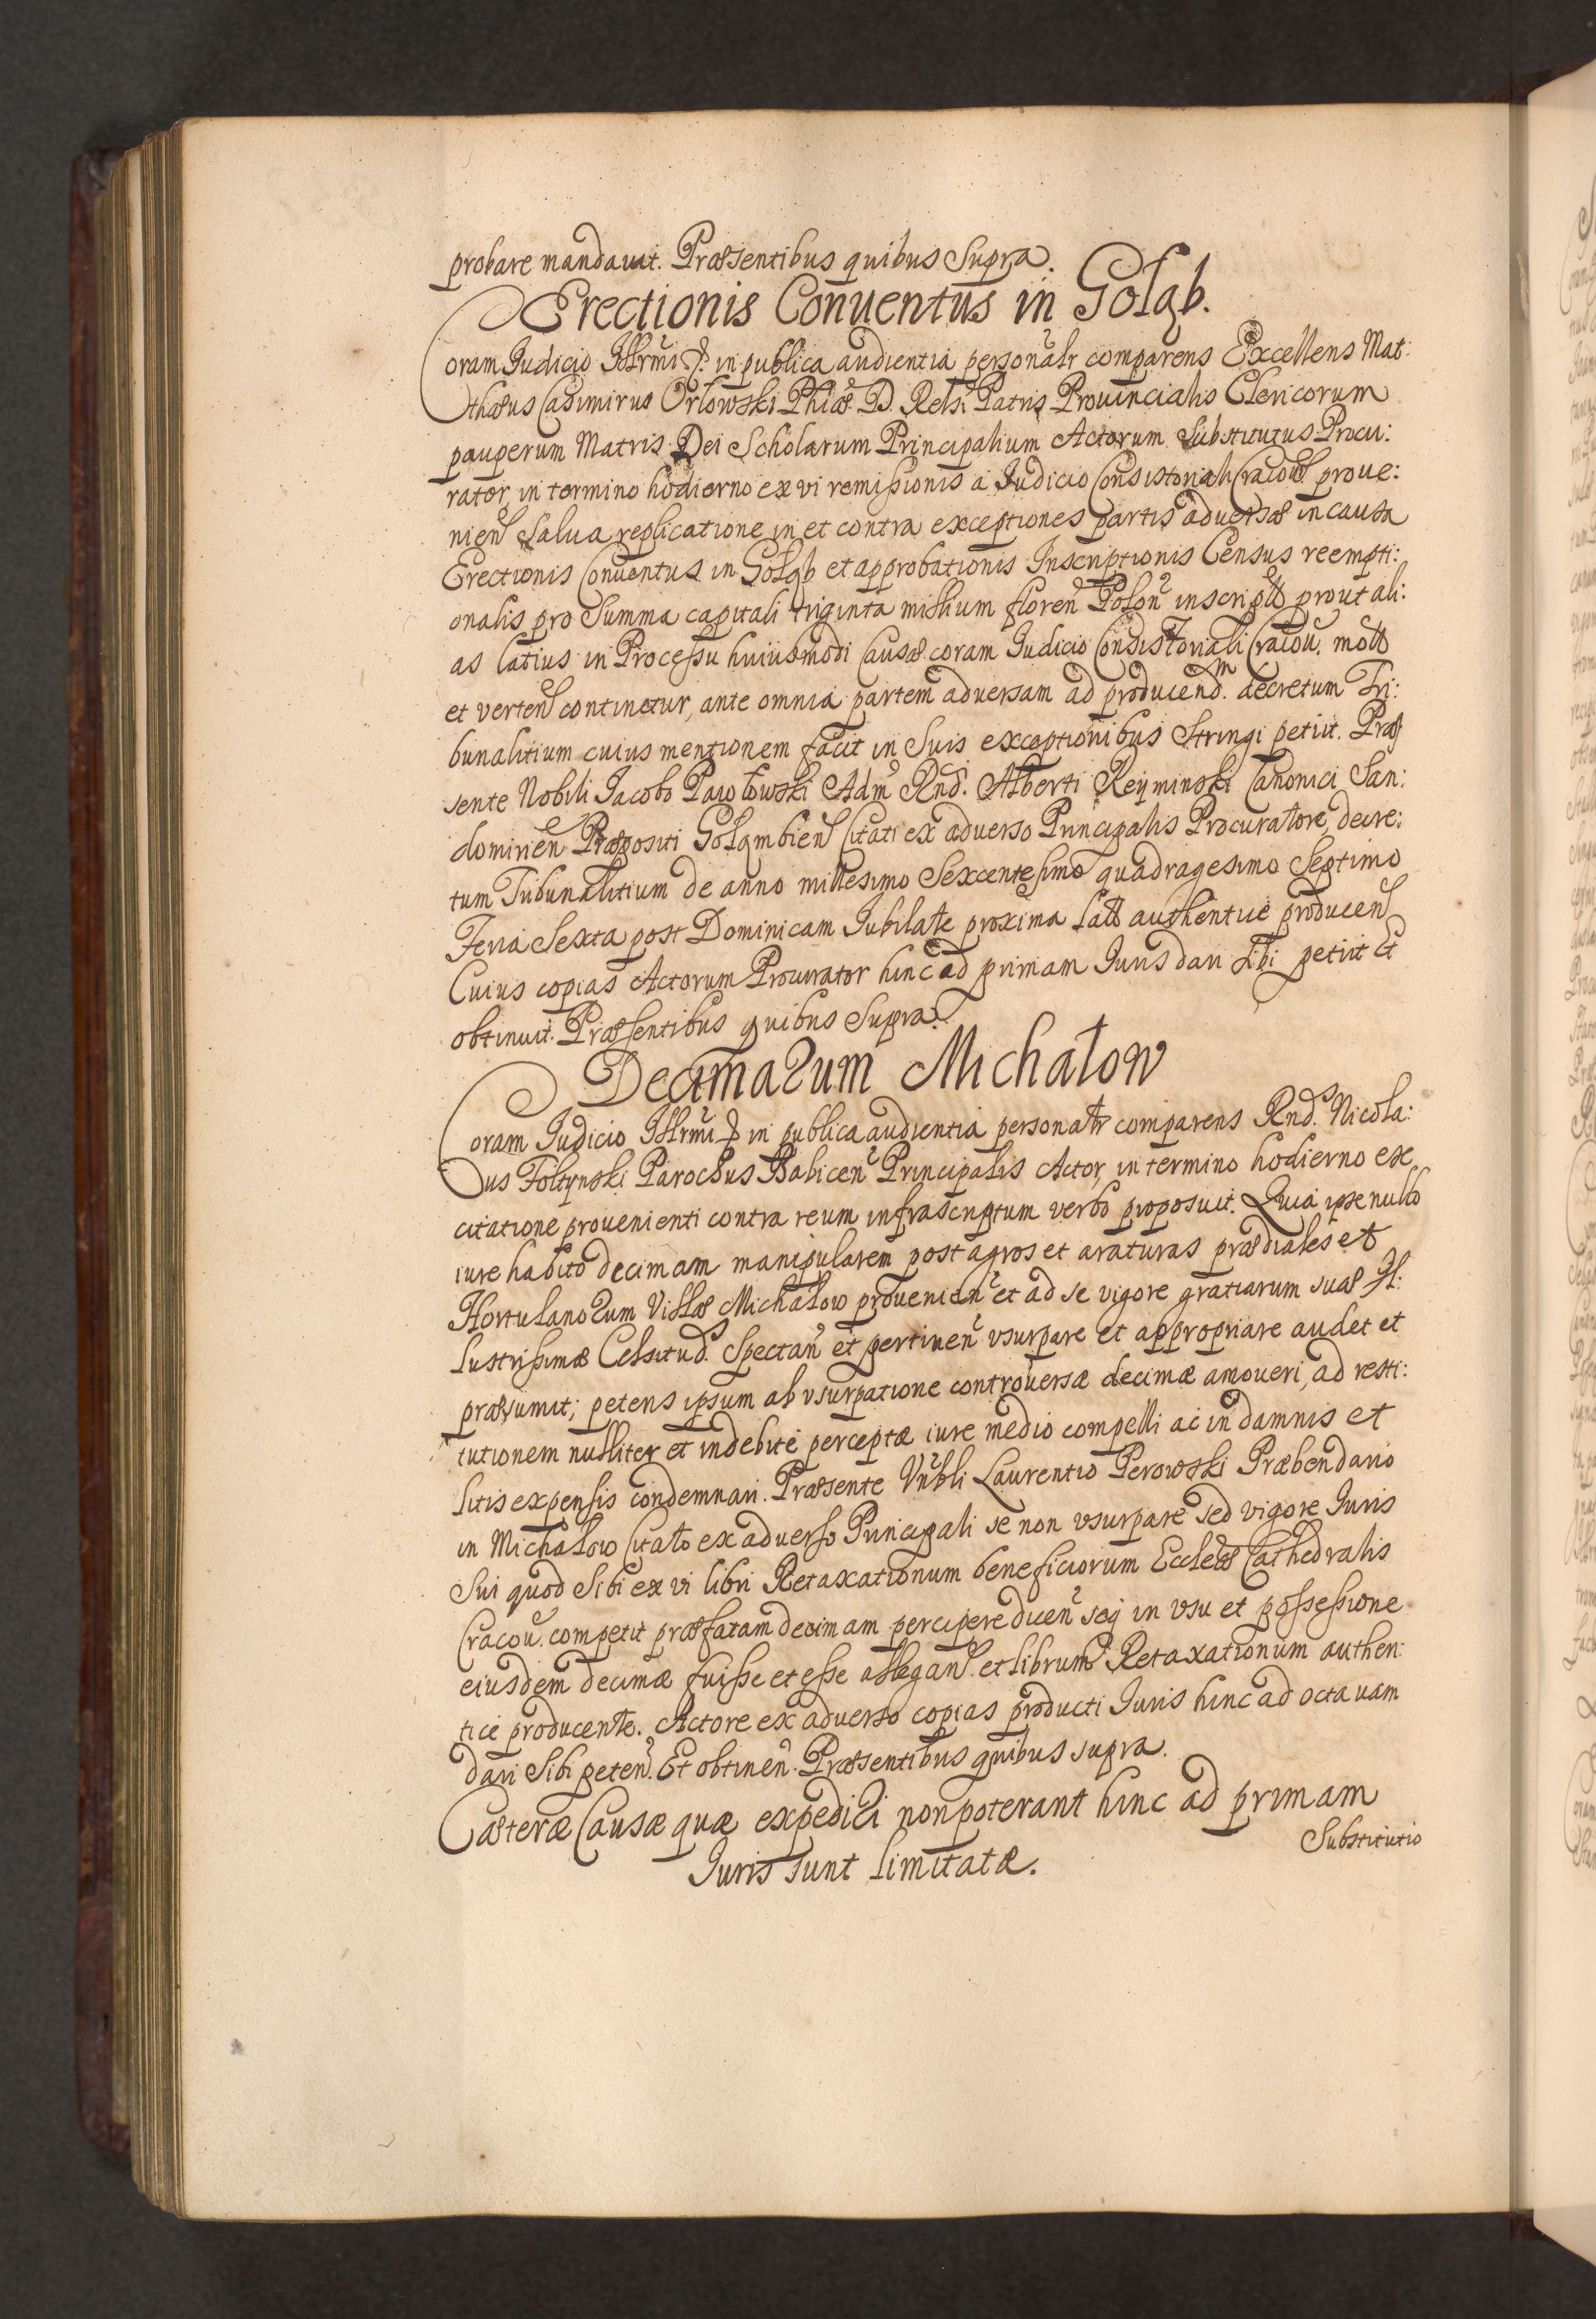 probare mandauit. Præsentibus quibus Supra.
Erectionis Conuentus in Gołąb.
Coram Iudicio Illrmi &. in publica audientia personalr comparens Excellens Mat:
thæus Casimirus Orłowski Phiæ D. Relsi Patris Prouincialis Clericorum
pauperum Matris Dei Scholarum Principalium Actorum Substitutus Procu:
rator, in termino hodierno ex vi remissionis a Iudicio Consistoriali Cracou proue:
nien Salua replicatione in et contra exceptiones partis aduersæ in causa
Erectionis Conuentus in Gołąb et approbationis Inscriptionis Census reempti:
onalis pro Summa capitali triginta millium floren Polon inscript prout ali:
as latius in Processu huiusmodi Causæ coram Iudicio Consistoriali Cracou. mot
et verten continetur, ante omnia partem aduersam ad producendm. decretum Tri:
bunalitium cuius mentionem facit in Suis exceptionibus Stringi petiit. Præ
sente Nobili Iacobo Pawłowski Adm Rnd. Alberti Reyminski Canonici San:
domirien Præpositi Gołąmbien Citati ex aduerso Principalis Procuratore, decre:
tum Tribunalitium de anno millesimo Sexcentesimo quadragesimo Septimo
Feria Sexta post Dominicam Iubilate proxima lat authentice producen
Cuius copias Actorum Procurator hinc ad primam Iuris dari Sibi petiit Et
obtinuit. Præsentibus quibus Supra.
Decimarum Michałow
Coram Iudicio Illrmi & in publica audientia personalr comparens Rnd. Nicola:
us Foltynski Parochus Babicen Principalis Actor, in termino hodierno ex
citatione prouenienti contra reum infrascriptum verbo proposuit. Quia ipse nullo
iure habito decimam manipularem post agros et araturas prædiales et
Hortulanorum Villæ Michałow prouenien et ad se vigore gratiarum suæ Il:
lustrissimæ Celsitud. Spectan et pertinen vsurpare et appropriare audet et
præsumit; petens ipsum ab vsurpatione controuersæ decimæ amoueri, ad resti:
tutionem nulliter et indebite perceptæ iure medio compelli ac in damnis et
litis expensis condemnari. Præsente Vnbli Laurentio Perowski Præbendario
in Michałow Citato ex aduerso Principali se non vsurpare sed vigore Iuris
Sui quod Sibi ex vi libri Retaxationum beneficiorum Eccleæ Cathedralis
Cracou. competit præfatam decimam percipere dicen seq in vsu et possessione
eiusdem decimæ fuisse et esse allegan. et librum Retaxationum authen:
tice producente. Actore ex aduerso copias producti Iuris hinc ad octauam
dari Sibi peten. Et obtinen. Præsentibus quibus supra.
Cæteræ Causæ quæ expediri non poterant hinc ad primam
Iuris sunt limitatæ.
Substitutio